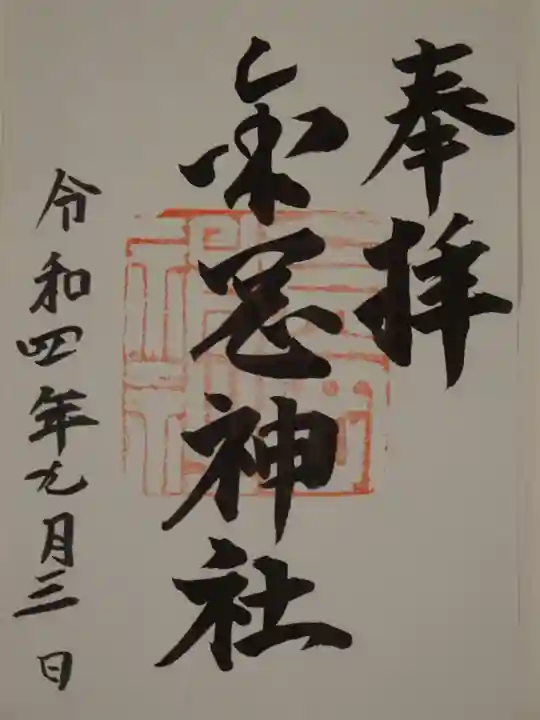 奉拝
金窓神社
令和四年九月三日